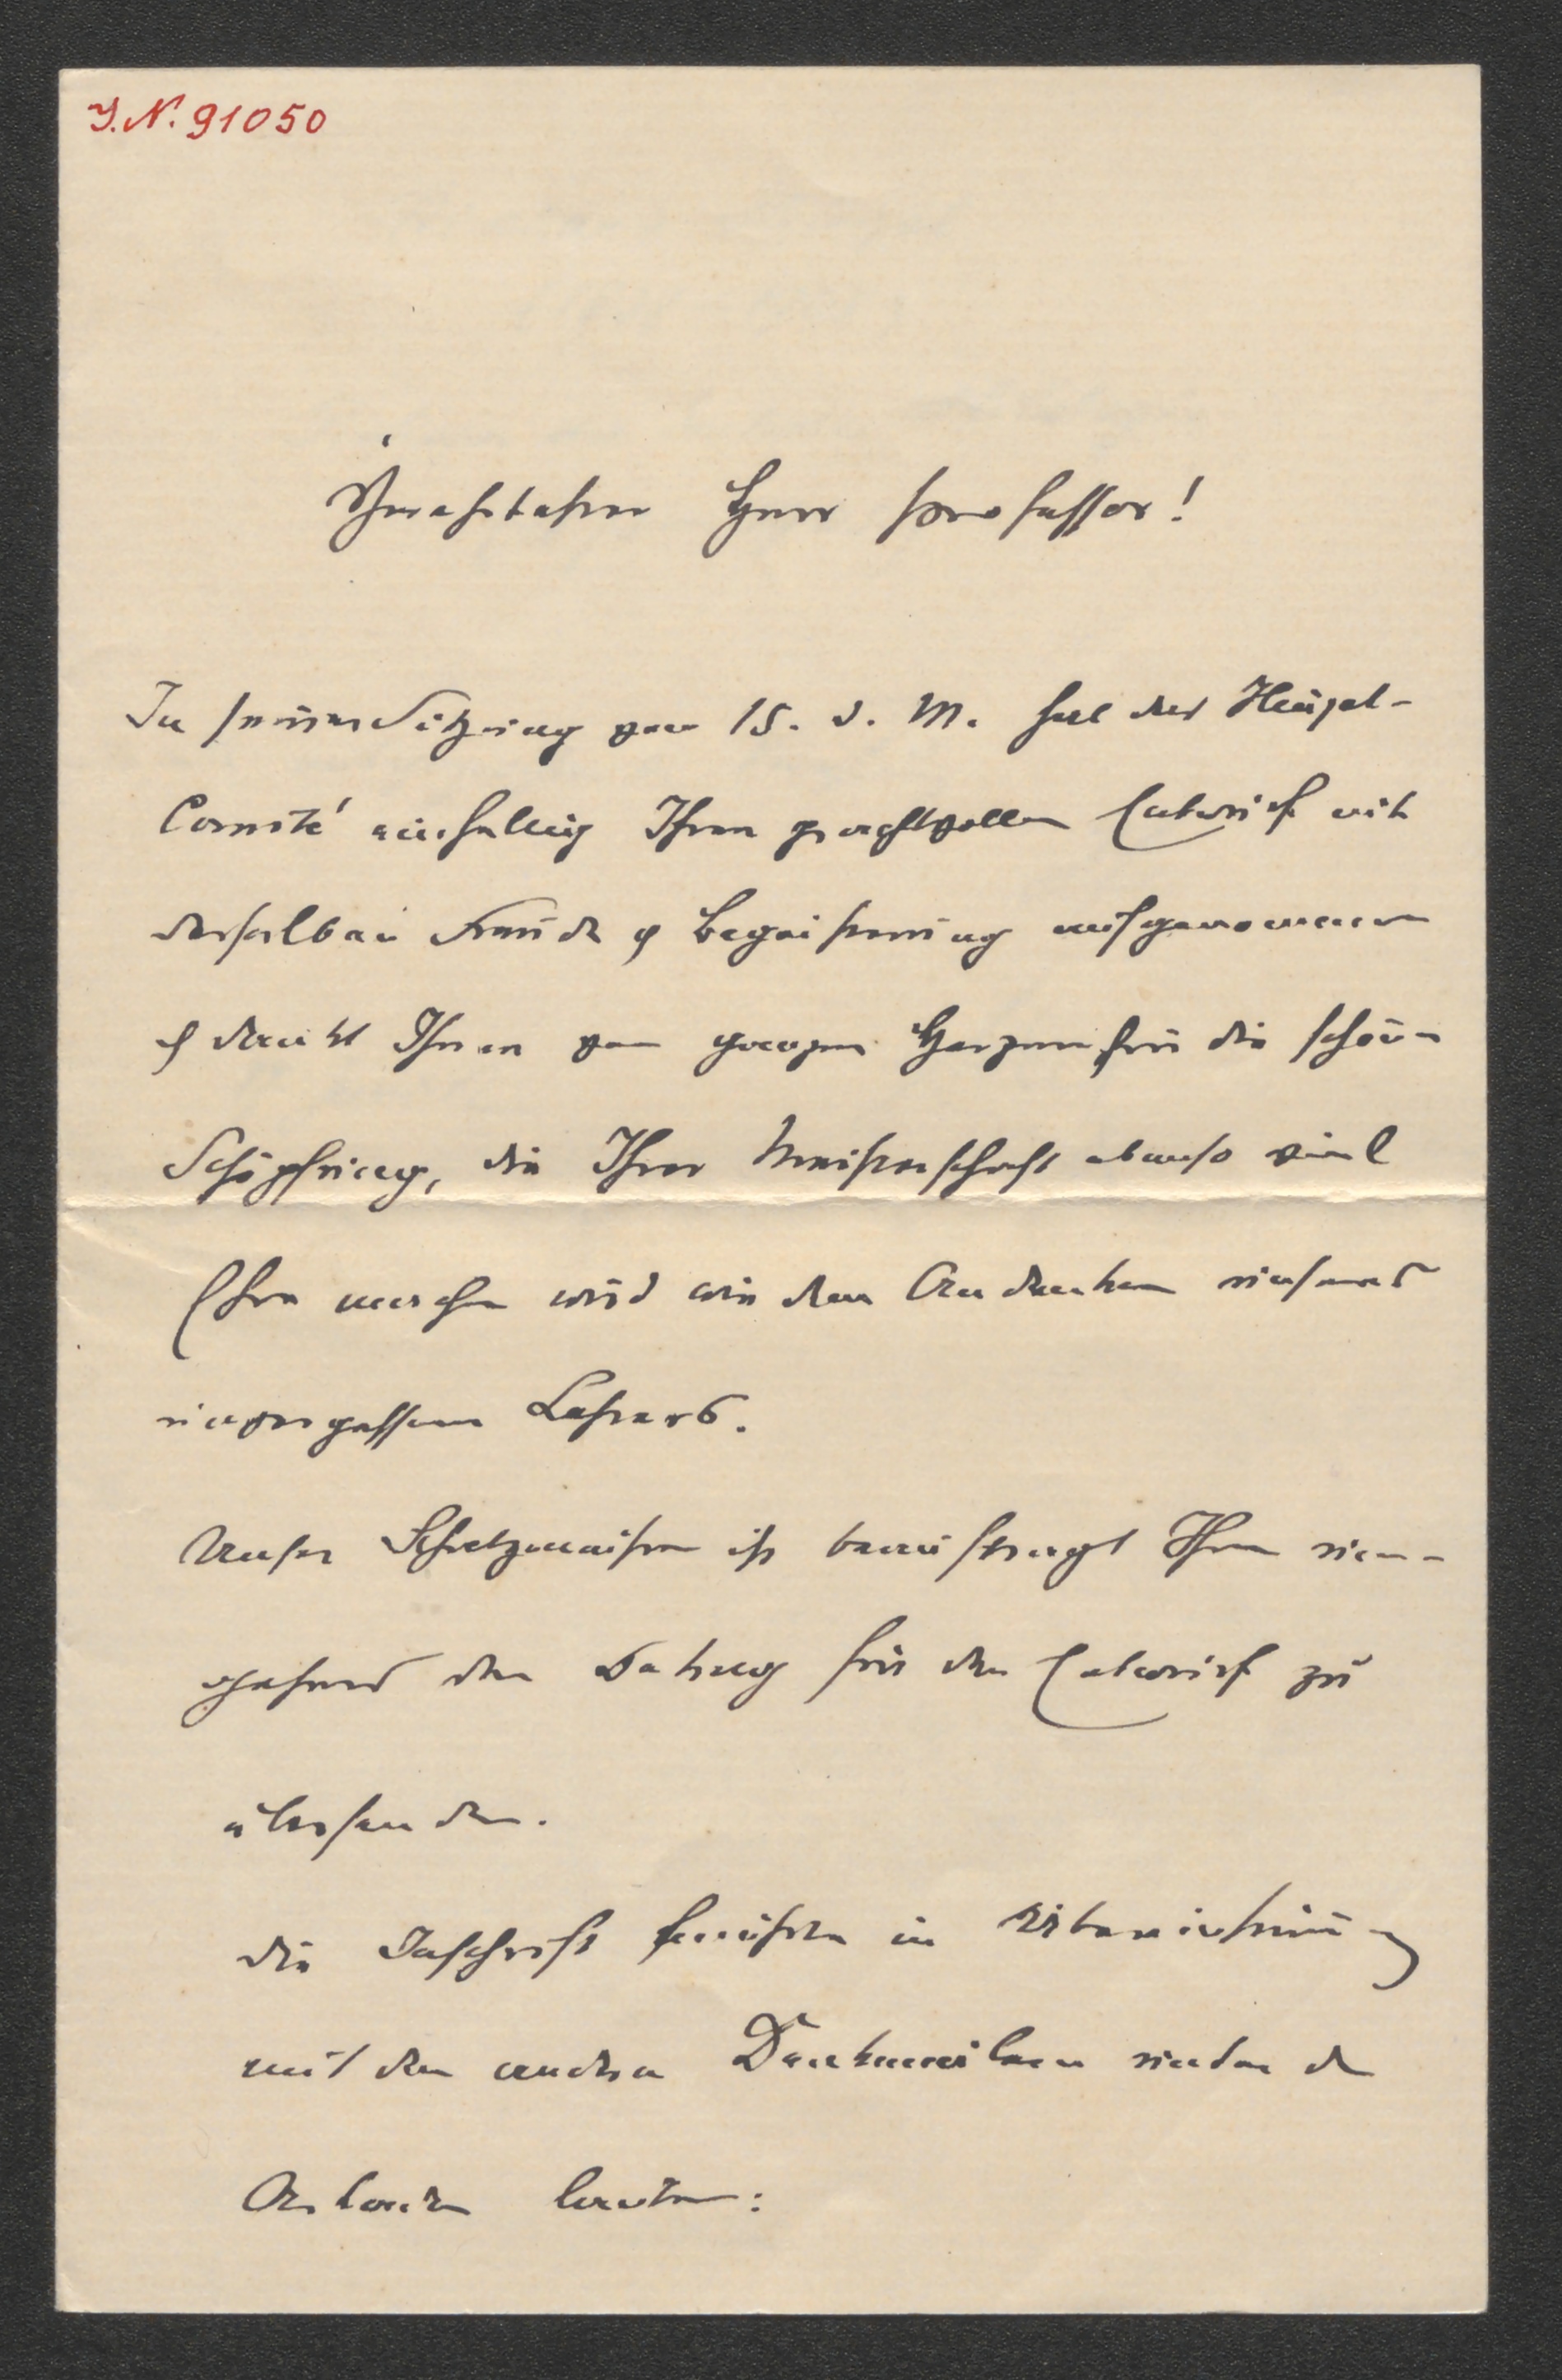 I.N. 91050
Verehrtester Herr Professor!
In seiner Sitzung vom 15. d. M. hat das Heigel-
Comité einhellig Ihren prachtvollen Entwurf mit
derselben Freude & Begeisterung aufgenommen
& dankt Ihnen von ganzem Herzen für die schöne
Schöpfung, die Ihrer Meisterschaft ebenso viel
Ehre machen wird wie dem Andenken unseres
unvergessenen Lehrers.
Unser Schatzmeister ist beauftragt Ihnen um-
gehend den Betrag für den Entwurf zu
übersenden.
Die Inschrift in Übereinstimmung
mit den andern Denkmälern unter den
Arkaden lauten: